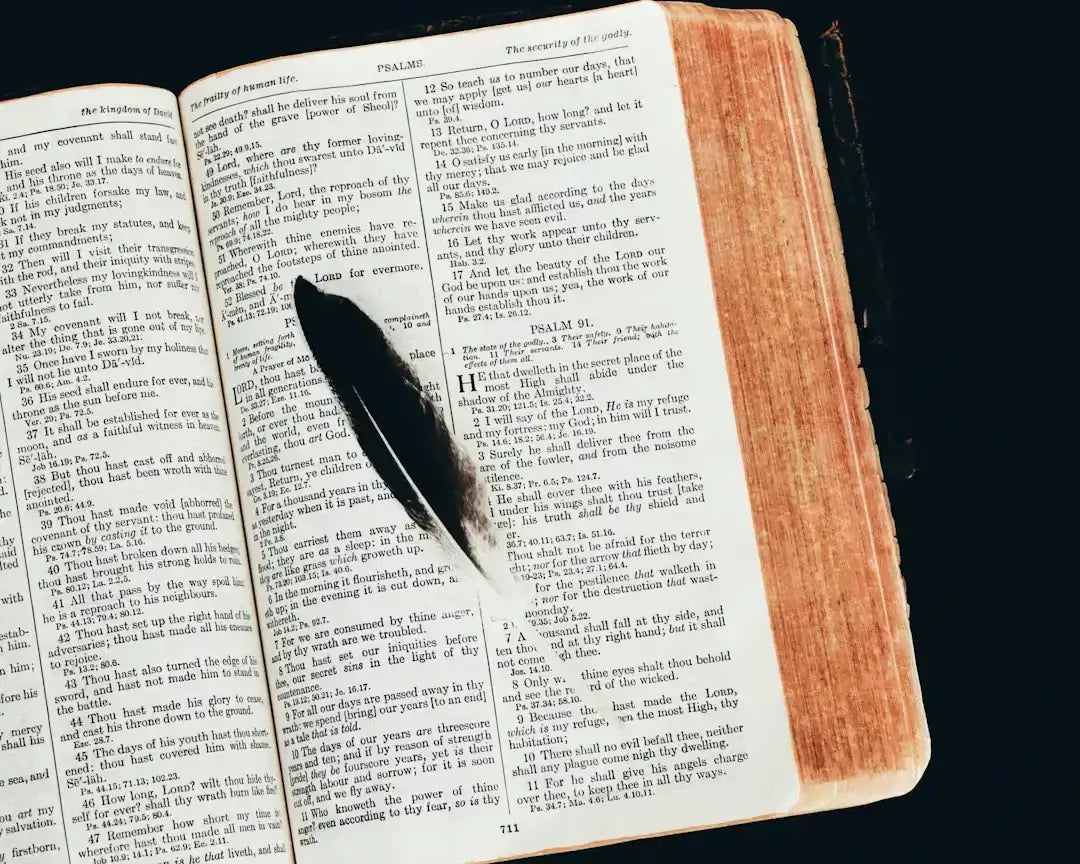 the kingdom of David
and my covenant shall stand fast
him.
His seed also will I make to endure for
and his throne as the days of heaven.
Ps. 18.50; Je. 33.17.
If his children forsake my law, and
not in my judgments;
Sa. 7.14.
31 If they break my statutes, and keep
my commandments;
32 Then will I visit their transgression
with the rod, and their iniquity with stripes.
33 Nevertheless my lovingkindness will I
not utterly take from him, nor suffer my
faithfulness to fail.
2 Sa. 7.15.
34 My covenant will I not break, nor
alter the thing that is gone out of my lips.
Nu. 23.19; De. 7.9; Je. 33.20,21.
35 Once have I sworn by my holiness that
I will not lie unto Dā'-vid.
Ps. 60.6; Am. 4.2.
36 His seed shall endure for ever, and his
throne as the sun before me.
Ver. 29; Ps. 72.5.
37 It shall be established for ever as the
moon, and as a faithful witness in heaven.
Sē'-läh.
Job 16.19; Ps. 72.5.
38 But thou hast cast off and abhorred
[rejected], thou hast been wroth with thine
anointed.
Ps. 20.6; 44.9.
39 Thou hast made void [abhorred] the
covenant of thy servant: thou hast profaned
his crown by casting it to the ground.
Ps. 74.7; 78.59; La. 5.16.
40 Thou hast broken down all his hedges;
thou hast brought his strong holds to ruin.
Ps. 80.12; La. 2.2,5.
41 All that pass by the way spoil him:
he is a reproach to his neighbours.
Ps. 44.13; 79.4; 80.12.
42 Thou hast set up the right hand of his
adversaries; thou hast made all his enemies
to rejoice.
Ps. 13.2; 80.6.
43 Thou hast also turned the edge of his
sword, and hast not made him to stand in
the battle.
44 Thou hast made his glory to cease,
and cast his throne down to the ground.
Eze. 28.7.
45 The days of his youth hast thou short-
ened: thou hast covered him with shame.
Sē'-läh.
Ps. 44.15; 71.13; 102.23.
46 How long, LORD? wilt thou hide thy-
self for ever? shall thy wrath burn like fire?
Ps. 44.24; 79.5; 80.4.
47 Remember how short my time is:
wherefore hast thou made all men in vain?
Job 10.9; 14.1; Ps. 62.9; Ec. 2.11.
is he that liveth, and shall
The frailty of human life.
PSALMS.
The security of the godly.
not see death? shall he deliver his soul from
the hand of the grave [power of Sheol]?
Sē'-läh.
Ps. 22.29; 49.9,15.
49 Lord, where are thy former loving-
kindnesses, which thou swarest unto Dā'-vid
in thy truth [faithfulness]?
50 Remember, Lord, the reproach of thy
servants; how I do bear in my bosom the
reproach of all the mighty people;
Ps. 69.9; 74.18,22.
51 Wherewith thine enemies have re-
proached, O LORD; wherewith they have
reproached the footsteps of thine anointed.
Ver. 38; Ps. 74.10.
52 Blessed be LORD for evermore.
Ps. 41.13; 72.19;
complaineth
10 and
A Prayer of Mo
place
LORD, thou hast b
in all generations.
De. 33.27; Eze. 11.16.
2 Before the moun
forth, or ever thou had
and the world, even fr
everlasting, thou art God.
3 Thou turnest man to
sayest, Return, ye children o
Ge. 3.19; Ec. 12.7.
4 For a thousand years in thy
as yesterday when it is past, and
in the night.
2 Pe. 3.8.
5 Thou carriest them away as
flood; they are as a sleep: in the m
they are like grass which groweth up.
Ps. 73.20; 103.15; Is. 40.6.
6 In the morning it flourisheth, and gro
eth up; in the evening it is cut down, a
withereth.
Job 14.2; Ps. 92.7.
7 For we are consumed by thine anger,
and by thy wrath are we troubled.
8 Thou hast set our iniquities before
thee, our secret sins in the light of thy
countenance.
Ps. 19.12; 50.21; Je. 16.17.
9 For all our days are passed away in thy
wrath: we spend [bring] our years [to an end]
as a tale that is told.
10 The days of our years are threescore
years and ten; and if by reason of strength
[pride] they be fourscore years, yet is their
strength labour and sorrow; for it is soon
cut off, and we fly away.
11 Who knoweth the power of thine
anger? even according to thy fear, so is thy
wrath.
12 So teach us to number our days, that
we may apply [get us] our hearts [a heart]
unto [of] wisdom.
Ps. 39.4.
13 Return, O LORD, how long? and let it
repent thee concerning thy servants.
De. 32.36; Ps. 135.14.
14 O satisfy us early [in the morning] with
thy mercy; that we may rejoice and be glad
all our days.
Ps. 85.6; 149.2.
15 Make us glad according to the days
wherein thou hast afflicted us, and the years
wherein we have seen evil.
16 Let thy work appear unto thy serv-
ants, and thy glory unto their children.
Hab. 3.2.
17 And let the beauty of the LORD our
God be upon us: and establish thou the work
of our hands upon us; yea, the work of our
hands establish thou it.
Ps. 27.4; Is. 26.12.
PSALM 91.
1 The state of the godly. 3 Their safety. 9 Their habita-
tion. 11 Their servants. 14 Their friend; with the
effects of them all.
HE that dwelleth in the secret place of the
most High shall abide under the
shadow of the Almighty.
Ps. 31.20; 121.5; Is. 25.4; 32.2.
2 I will say of the LORD, He is my refuge
and my fortress: my God; in him will I trust.
Ps. 14.6; 18.2; 56.4; Je. 16.19.
3 Surely he shall deliver thee from the
are of the fowler, and from the noisome
tilence.
Ki. 8.37; Pr. 6.5; Ps. 124.7.
He shall cover thee with his feathers,
under his wings shalt thou trust [take
ge]: his truth shall be thy shield and
er.
36.7; 40.11; 63.7; Is. 51.16.
Thou shalt not be afraid for the terror
ght; nor for the arrow that flieth by day;
19-23; Ps. 23.4; 27.1; 64.4.
for the pestilence that walketh in
; nor for the destruction that wast-
noonday.
9.35; Job 5.22.
7 A thousand shall fall at thy side, and
ten thou nd at thy right hand; but it shall
not come gh thee.
Jos. 14.10.
8 Only w thine eyes shalt thou behold
and see the re rd of the wicked.
Ps. 37.34; 58.10.
9 Because th hast made the LORD,
which is my refuge, ven the most High, thy
habitation;
10 There shall no evil befall thee, neither
shall any plague come nigh thy dwelling.
11 For he shall give his angels charge
over thee, to keep thee in all thy ways.
Ps. 34.7; Ma. 4.6; Lu. 4.10,11.
711